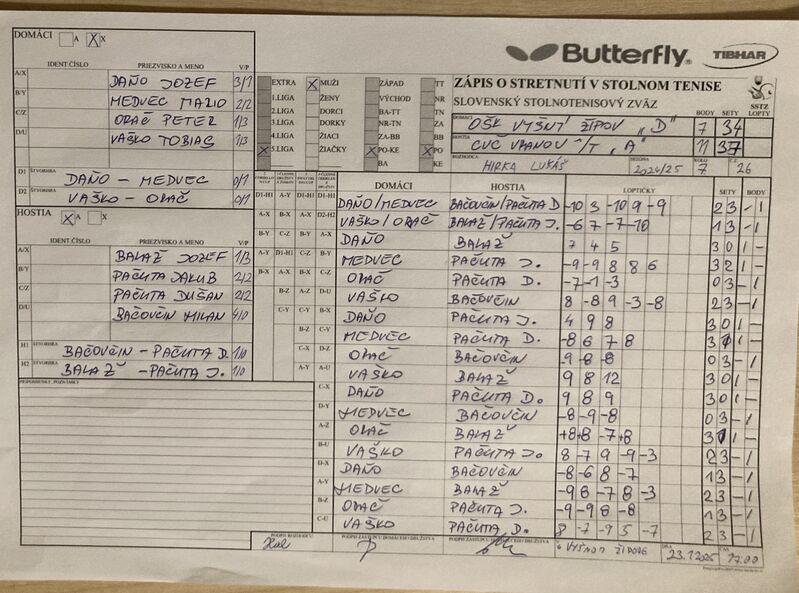 DOMÁCI A X
IDENT.ČÍSLO PRIEZVISKO A MENO V/P
A/X DAŇO JOZEF 3/1
B/Y MEDVEC MARIO 2/2
C/Z ORAČ PETER 1/3
D/U VAŠKO TOBIAS 1/3
D1 ŠTVORHRA DAŇO - MEDVEC 0/1
D2 ŠTVORHRA VAŠKO - ORAČ 0/1
HOSTIA A X
IDENT.ČÍSLO PRIEZVISKO A MENO V/P
A/X BALAŽ JOZEF 1/3
B/Y PAČUTA JAKUB 2/2
C/Z PAČUTA DUŠAN 2/2
D/U BAČOVČIN MILAN 4/0
H1 ŠTVORHRA BAČOVČIN - PAČUTA D. 1/0
H2 ŠTVORHRA BALAŽ - PAČUTA J. 1/0
PRIPOMIENKY, POZNÁMKY
Butterfly TIBHAR
EXTRA MUŽI ZÁPAD TT
1.LIGA ŽENY VÝCHOD NR
2.LIGA DORCI BA-TT TN
3.LIGA DORKY NR-TN ZA
4.LIGA ŽIACI ZA-BB BB
5.LIGA ŽIAČKY PO-KE PO
BA KE
ZÁPIS O STRETNUTÍ V STOLNOM TENISE
SLOVENSKÝ STOLNOTENISOVÝ ZVÄZ
BODY SETY SSTZ LOPTY
DOMÁCI OŠK VYŠNÝ ŽIPOV "D" 7 34
HOSTIA CVČ VRANOV /T "A" 11 37
ROZHODCA HIRKA LUKÁŠ SEZÓNA 2024/25 KOLO 7 Č.Z. 26
DOMÁCI HOSTIA LOPTIČKY SETY BODY
DAŇO/MEDVEC BAČOVČIN/PAČUTA D -10 3 -10 9 -9 2 3 - 1
VAŠKO/ORAČ BALAŽ/PAČUTA J. -6 7 -7 -10 1 3 - 1
DAŇO BALAŽ 7 4 5 3 0 1 -
MEDVEC PAČUTA J. -9 -9 8 8 6 3 2 1 -
ORAČ PAČUTA D. -7 -1 -3 0 3 - 1
VAŠKO BAČOVČIN 8 -8 9 -3 -8 2 3 - 1
DAŇO PAČUTA J. 4 9 8 3 0 1 -
MEDVEC PAČUTA D. -8 6 7 8 3 1 1 -
ORAČ BAČOVČIN -9 -8 -8 0 3 - 1
VAŠKO BALAŽ 9 8 12 3 0 1 -
DAŇO PAČUTA D. 9 8 9 3 0 1 -
MEDVEC BAČOVČIN -8 -9 -8 0 3 - 1
ORAČ BALAŽ +8 +8 -7 +8 3 1 1 -
VAŠKO PAČUTA J. 8 -7 9 -9 -3 2 3 - 1
DAŇO BAČOVČIN -8 -6 8 -7 1 3 - 1
MEDVEC BALAŽ -9 8 -7 8 -3 2 3 - 1
ORAČ PAČUTA J. -9 -9 8 -8 1 3 - 1
VAŠKO PAČUTA D. 8 -7 -9 5 -7 2 3 - 1
PODPIS ROZHODCU PODPIS ZÁSTUPCU DOMÁCEHO DRUŽSTVA DŇA 23.12.2025 ČAS 17.00